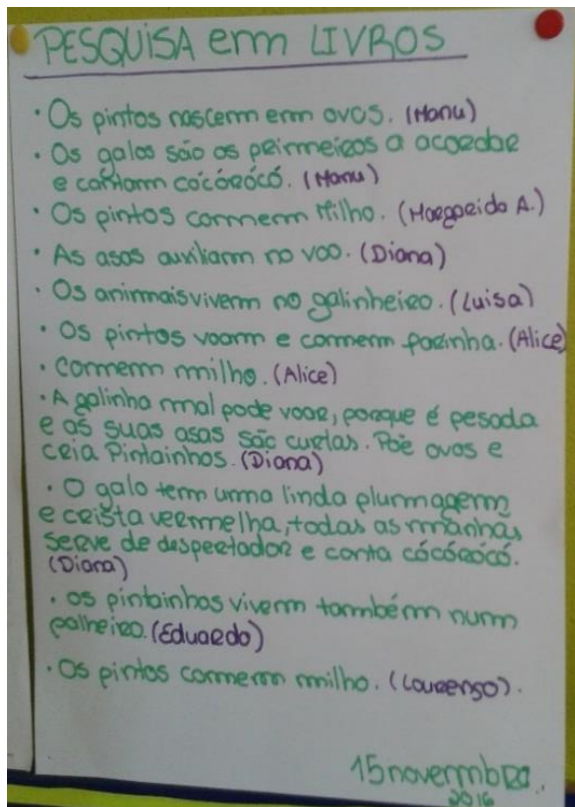 PESQUISA em LIVROS
· Os pintos nascem em ovos. (Manu)
· Os galos são os primeiros a acordar
e cantam cócórócó. (Manu)
· Os pintos comem milho. (Margarida A.)
· As asas auxiliam no voo. (Diana)
· Os animais vivem no galinheiro. (Luisa)
· Os pintos voam e comem farinha. (Alice)
· Comem milho. (Alice)
· A galinha mal pode voar, porque é pesada
e as suas asas são curtas. Põe ovos e
cria Pintainhos. (Diana)
· O galo tem uma linda plumagem
e crista vermelha, todas as manhãs
serve de despertador e canta cócórócó.
(Diana)
· os pintainhos vivem também num
palheiro. (Eduardo)
· Os pintos comem milho. (Lourenço).
15 novembro
2016